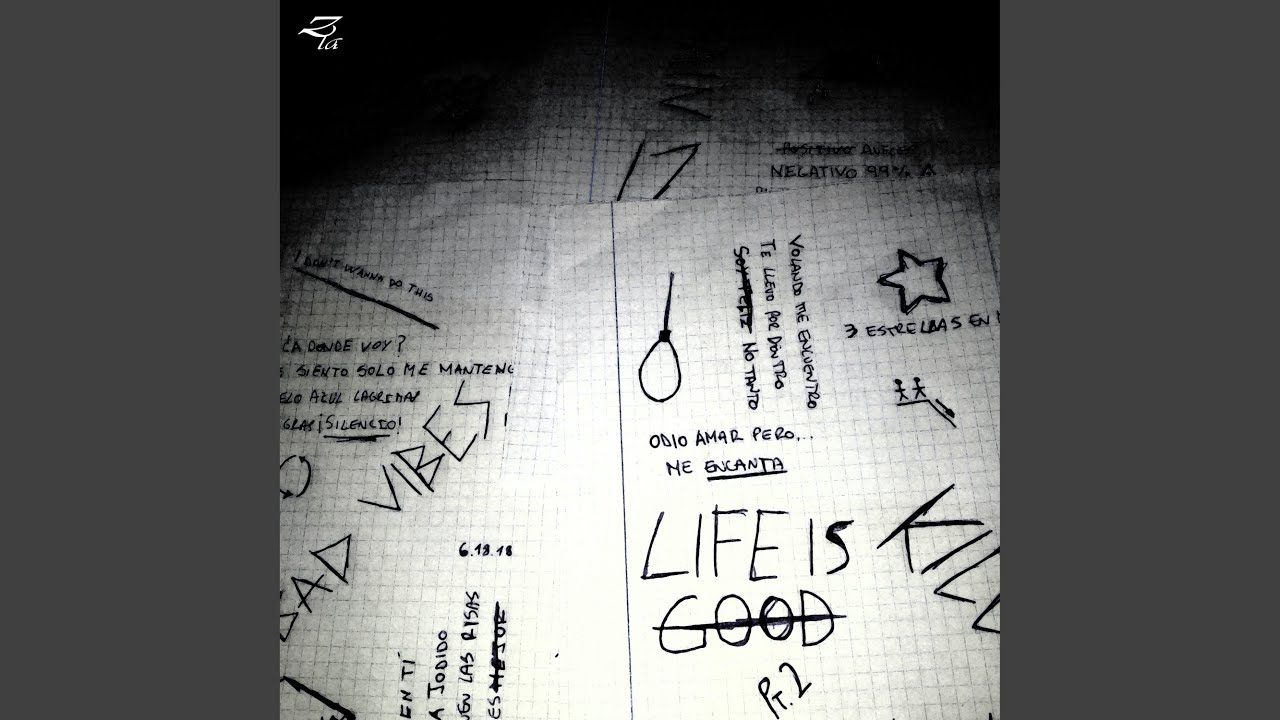 17
NEGATIVO 99%
I DON'T WANNA DO THIS
DONDE VOY?
SIENTO SOLO ME MANTENG
AZUL LAGRIMAS
¡SILENCIO!
VIBES
SAD
6.18.18
EN TÍ
A JODIDO
EN LAS RISAS
ES MEJOR
VOLANDO ME ENCUENTRO
TE LLEVO POR DENTRO
SOY FELIZ NO TANTO
3 ESTRELLAS EN
ODIO AMAR PERO...
ME ENCANTA
LIFE IS
GOOD
PT.2
KILL